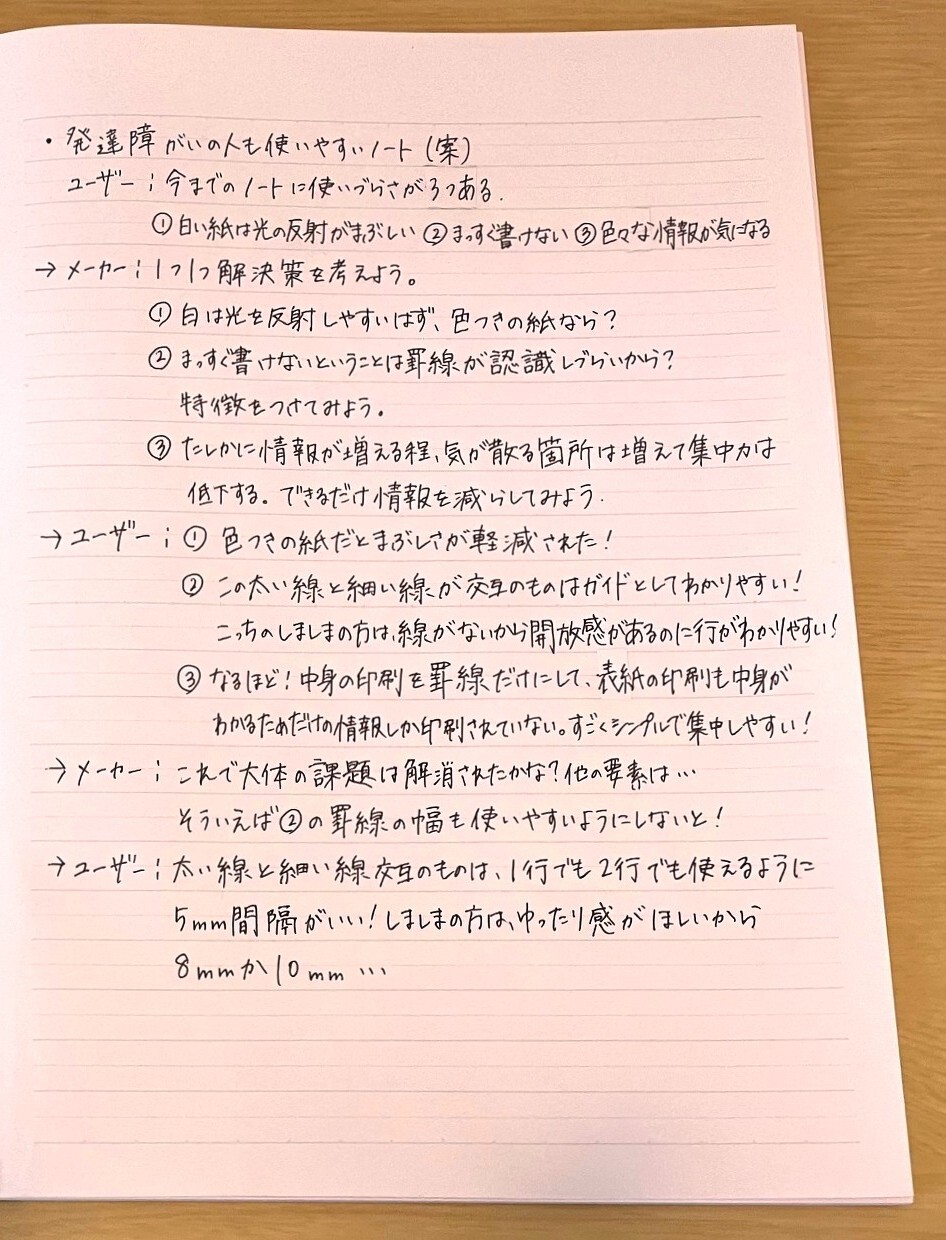 ・発達障がいの人も使いやすいノート(案)
ユーザー：今までのノートに使いづらさが3つある.
①白い紙は光の反射がまぶしい ②まっすぐ書けない ③色々な情報が気になる
→メーカー：1つ1つ解決策を考えよう。
①白は光を反射しやすいはず、色つきの紙なら？
②まっすぐ書けないということは罫線が認識しづらいから？
特徴をつけてみよう。
③たしかに情報が増える程、気が散る箇所は増えて集中力は
低下する。できるだけ情報を減らしてみよう.
→ユーザー：①色つきの紙だとまぶしさが軽減された！
②この太い線と細い線が交互のものはガイドとしてわかりやすい！
こっちのしましまの方は、線がないから開放感があるのに行がわかりやすい！
③なるほど！中身の印刷を罫線だけにして、表紙の印刷も中身が
わかるためだけの情報しか印刷されていない。すごくシンプルで集中しやすい！
→メーカー：これで大体の課題は解消されたかな？他の要素は…
そういえば②の罫線の幅も使いやすいようにしないと！
→ユーザー：太い線と細い線交互のものは、1行でも2行でも使えるように
5mm間隔がいい！しましまの方は、ゆったり感がほしいから
8mmか10mm…